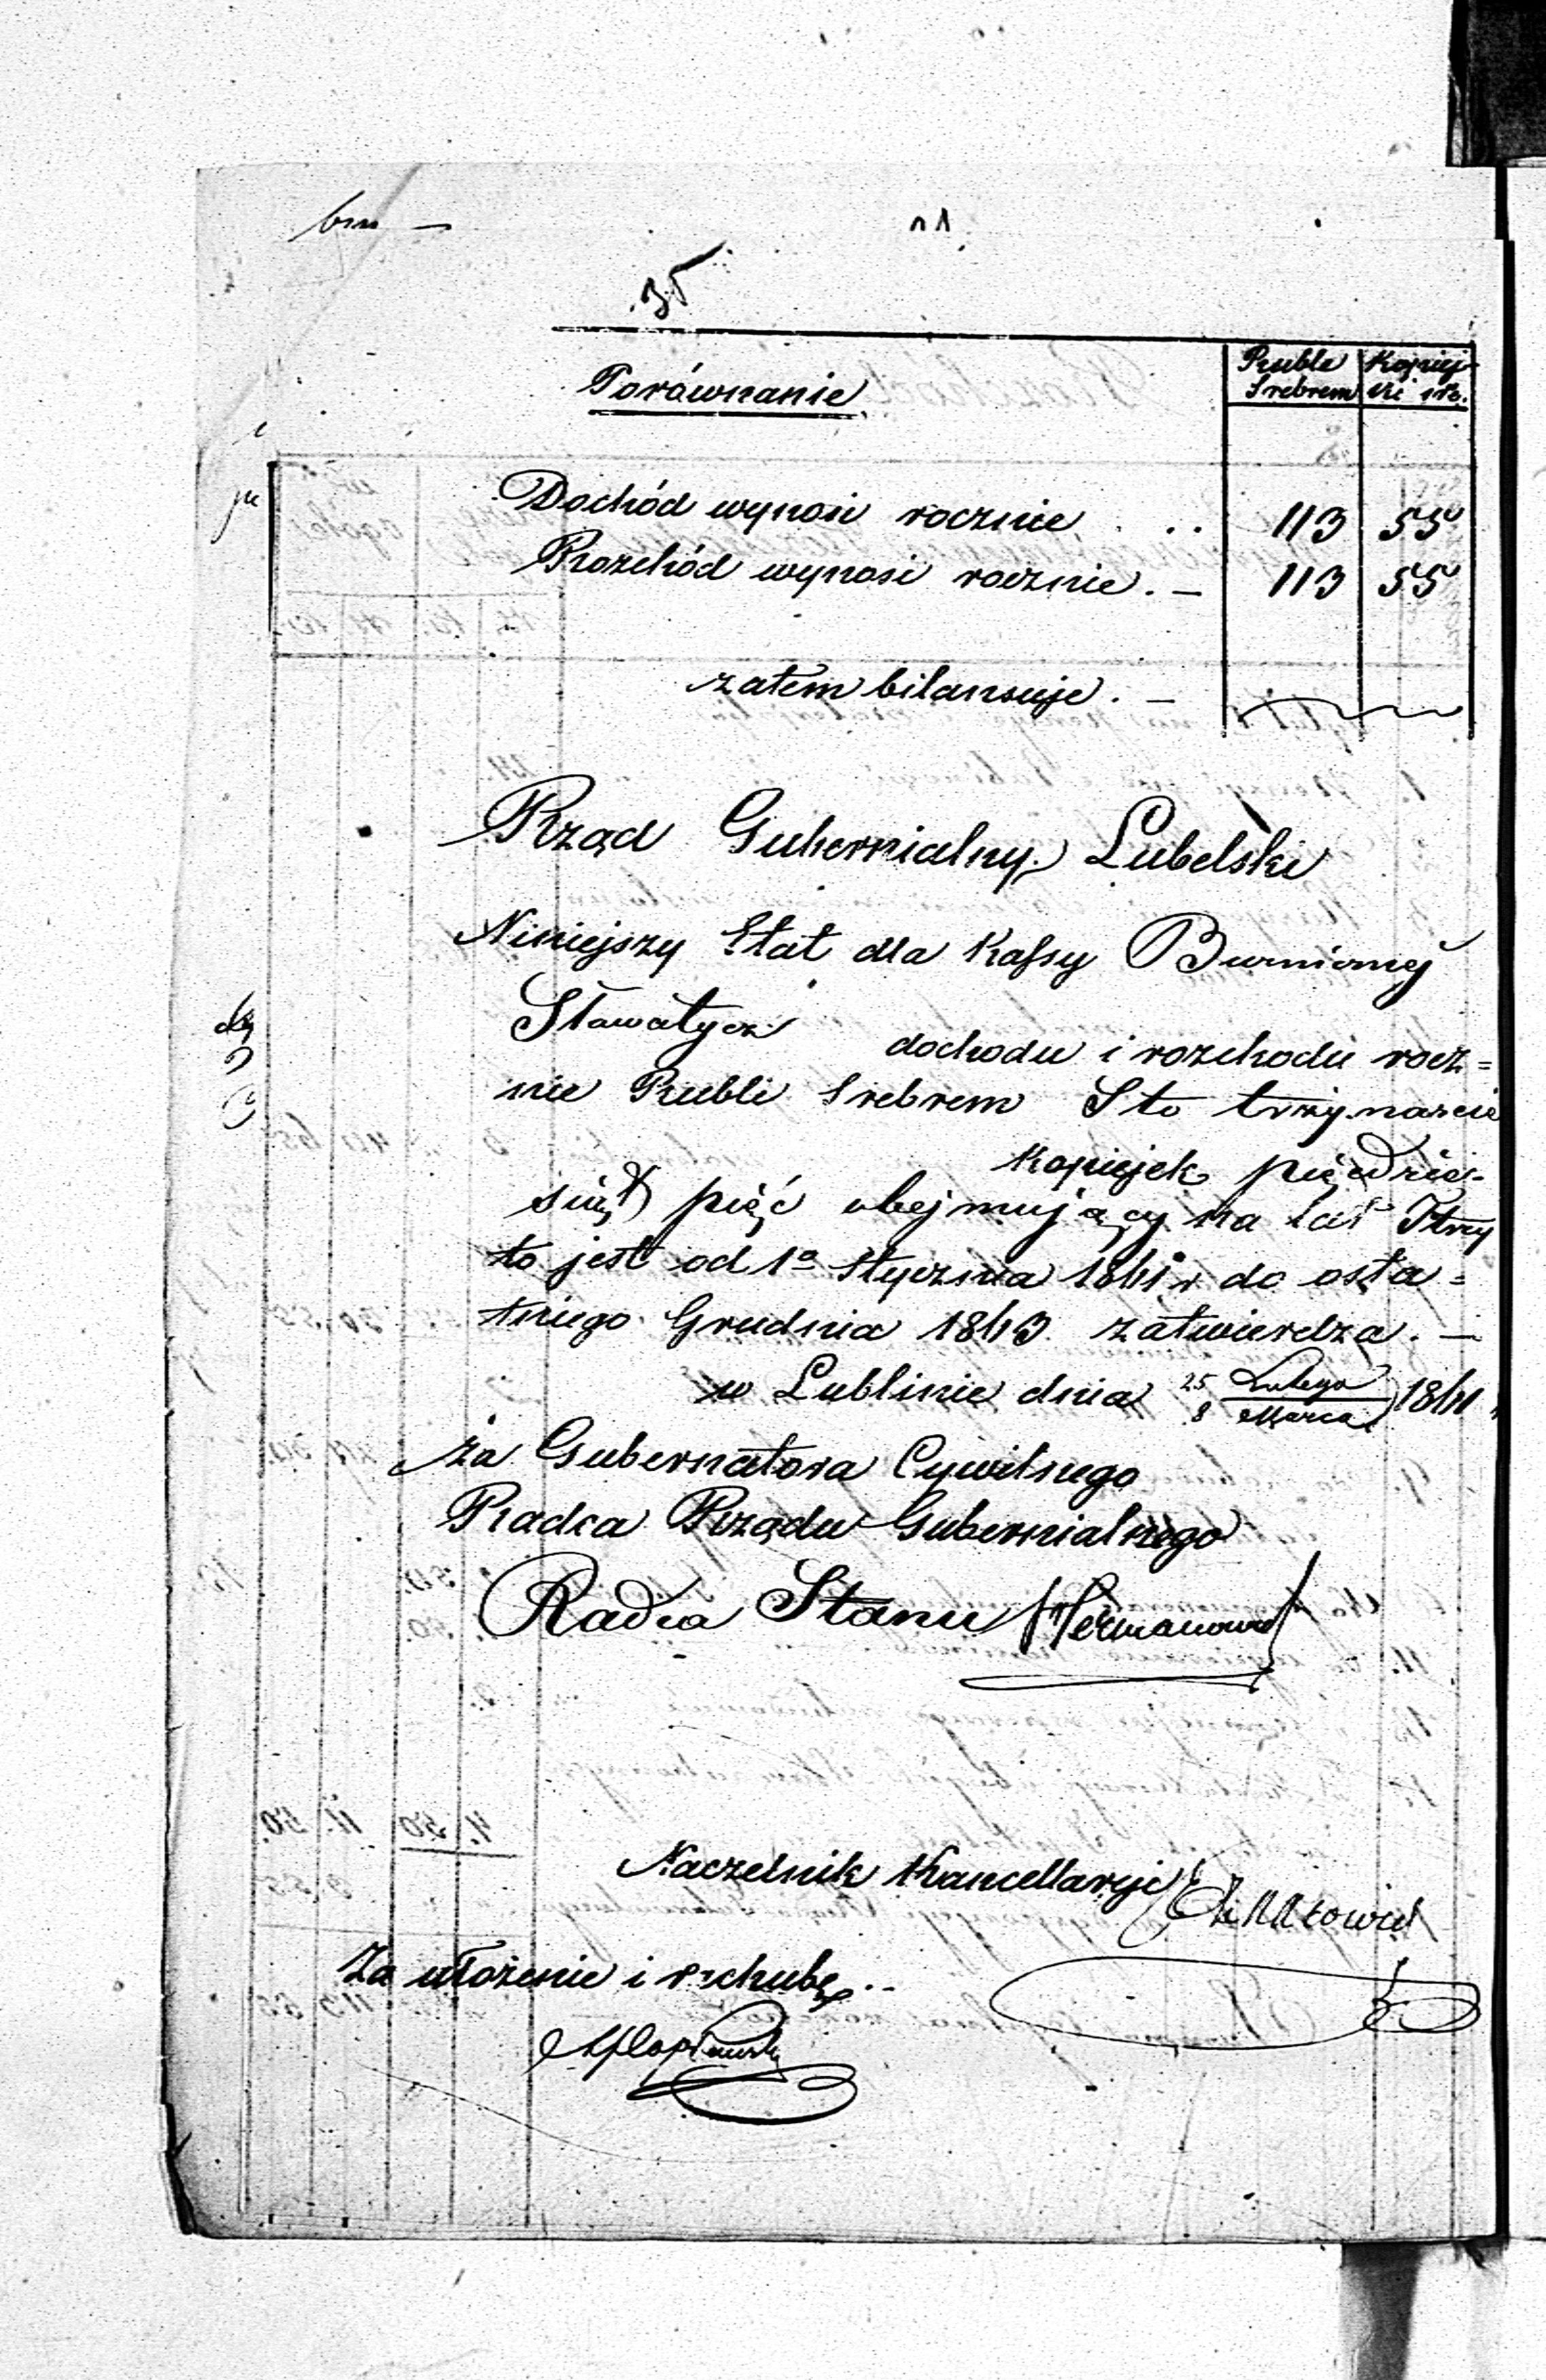 35
Ruble Kopiej-
Porównanie Srebrem ki
Dochód wynosi rocznie . . . 113 55
Rozchód wynosi rocznie . — 113 55
zatem bilansuje . —
Rząd Gubernialny Lubelski
Niniejszy Etat dla Kassy Bursionej
Sławatycz dochodu i rozchodu rocz=
nie Rubli Srebrem Sto trzynaście
Kopiejek pięćdzie-
siąt pięć obejmujący na lat trzy
to jest od 1º Stycznia 1841 r do osta=
tniego Grudnia 1843 zatwierdza . —
w Lublinie dnia 25 Lutego 1841
8 Marca
za Gubernatora Cywilnego
Radca Rządu Gubernialnego
Radca Stanu
Naczelnik Kancellaryi
Za ułożenie i rachubę